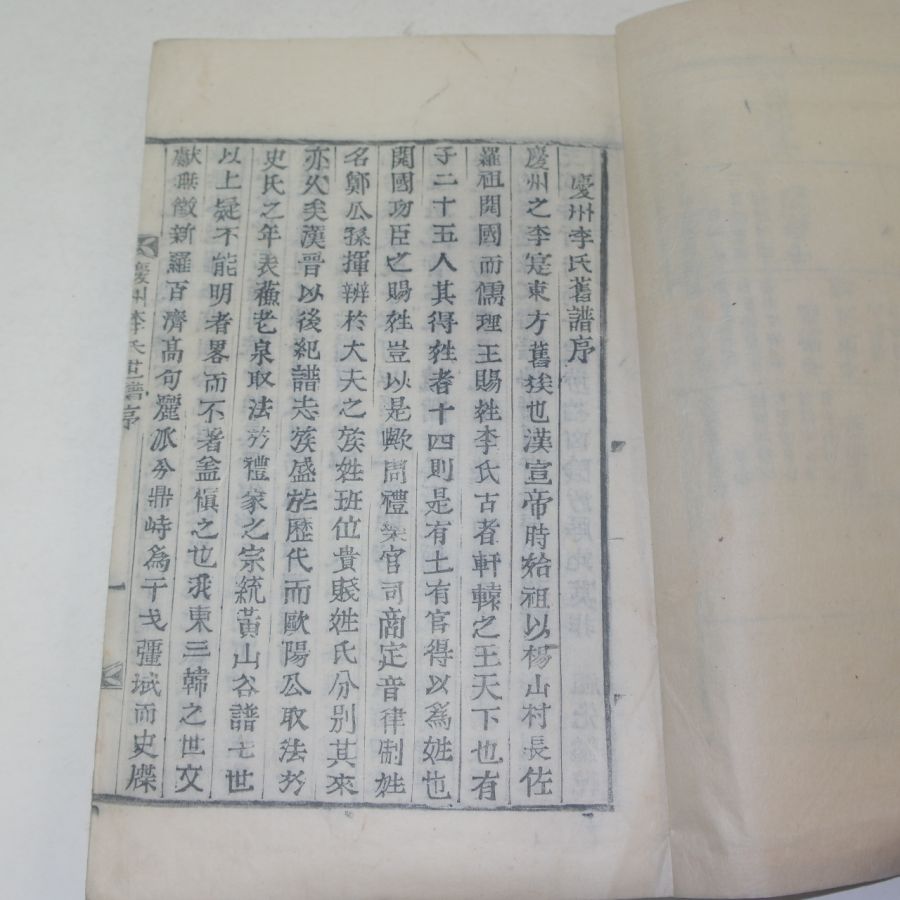 慶州李氏舊譜序
慶州之李寔東方舊族也漢宣帝時始祖以楊山村長佐
羅祖開國而儒理王賜姓李氏古者軒轅之王天下也有
子二十五人其得姓者十四則是有土有官得以爲姓也
開國功臣之賜姓豈以是歟周禮樂官司商定音律制姓
名鄭公孫揮辨於大夫之族姓班位貴賤姓氏分別其來
亦久矣漢晉以後紀譜志簇盛於歷代而歐陽公取法於
史氏之年表蘓老泉取法於禮家之宗統黃山谷譜七世
以上疑不能明者畧而不著盖愼之也我東三韓之世文
獻無徵新羅百濟高句麗派分鼎峙爲干戈彊域而史牒
慶州李氏世譜序
一